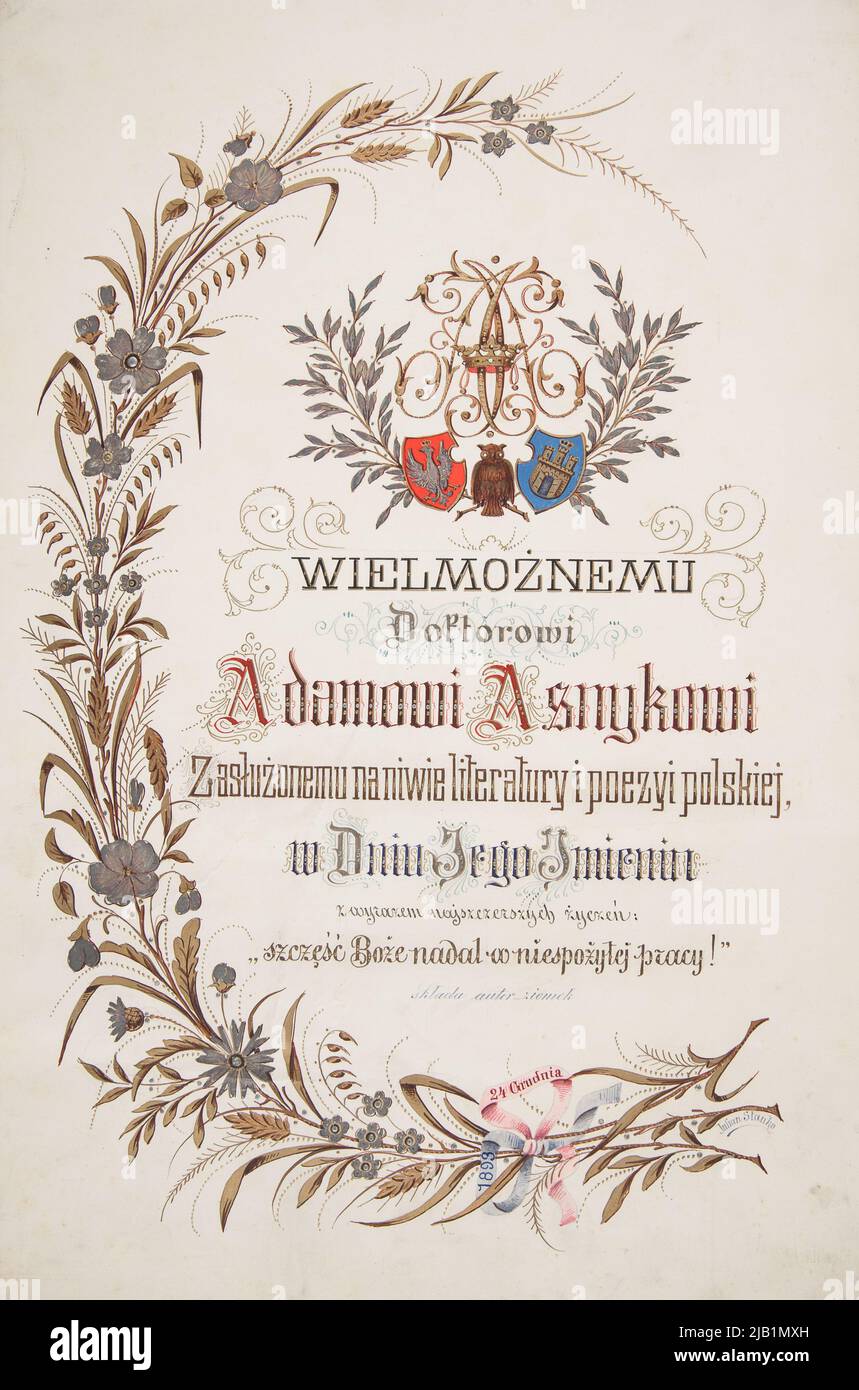 WIELMOŻNEMU
Doktorowi
Adamowi Asnykowi
Zasłużonemu na niwie literatury i poezyi polskiej,
w Dniu Jego Imienin
z wyrazem najszczerszych życzeń:
„szczęść Boże nadal w niespożytej pracy!”
składa autor ziomek
24 Grudnia
1893
Julian Stańko
alamy
alamy
Image ID: 2JB1MXH
www.alamy.com